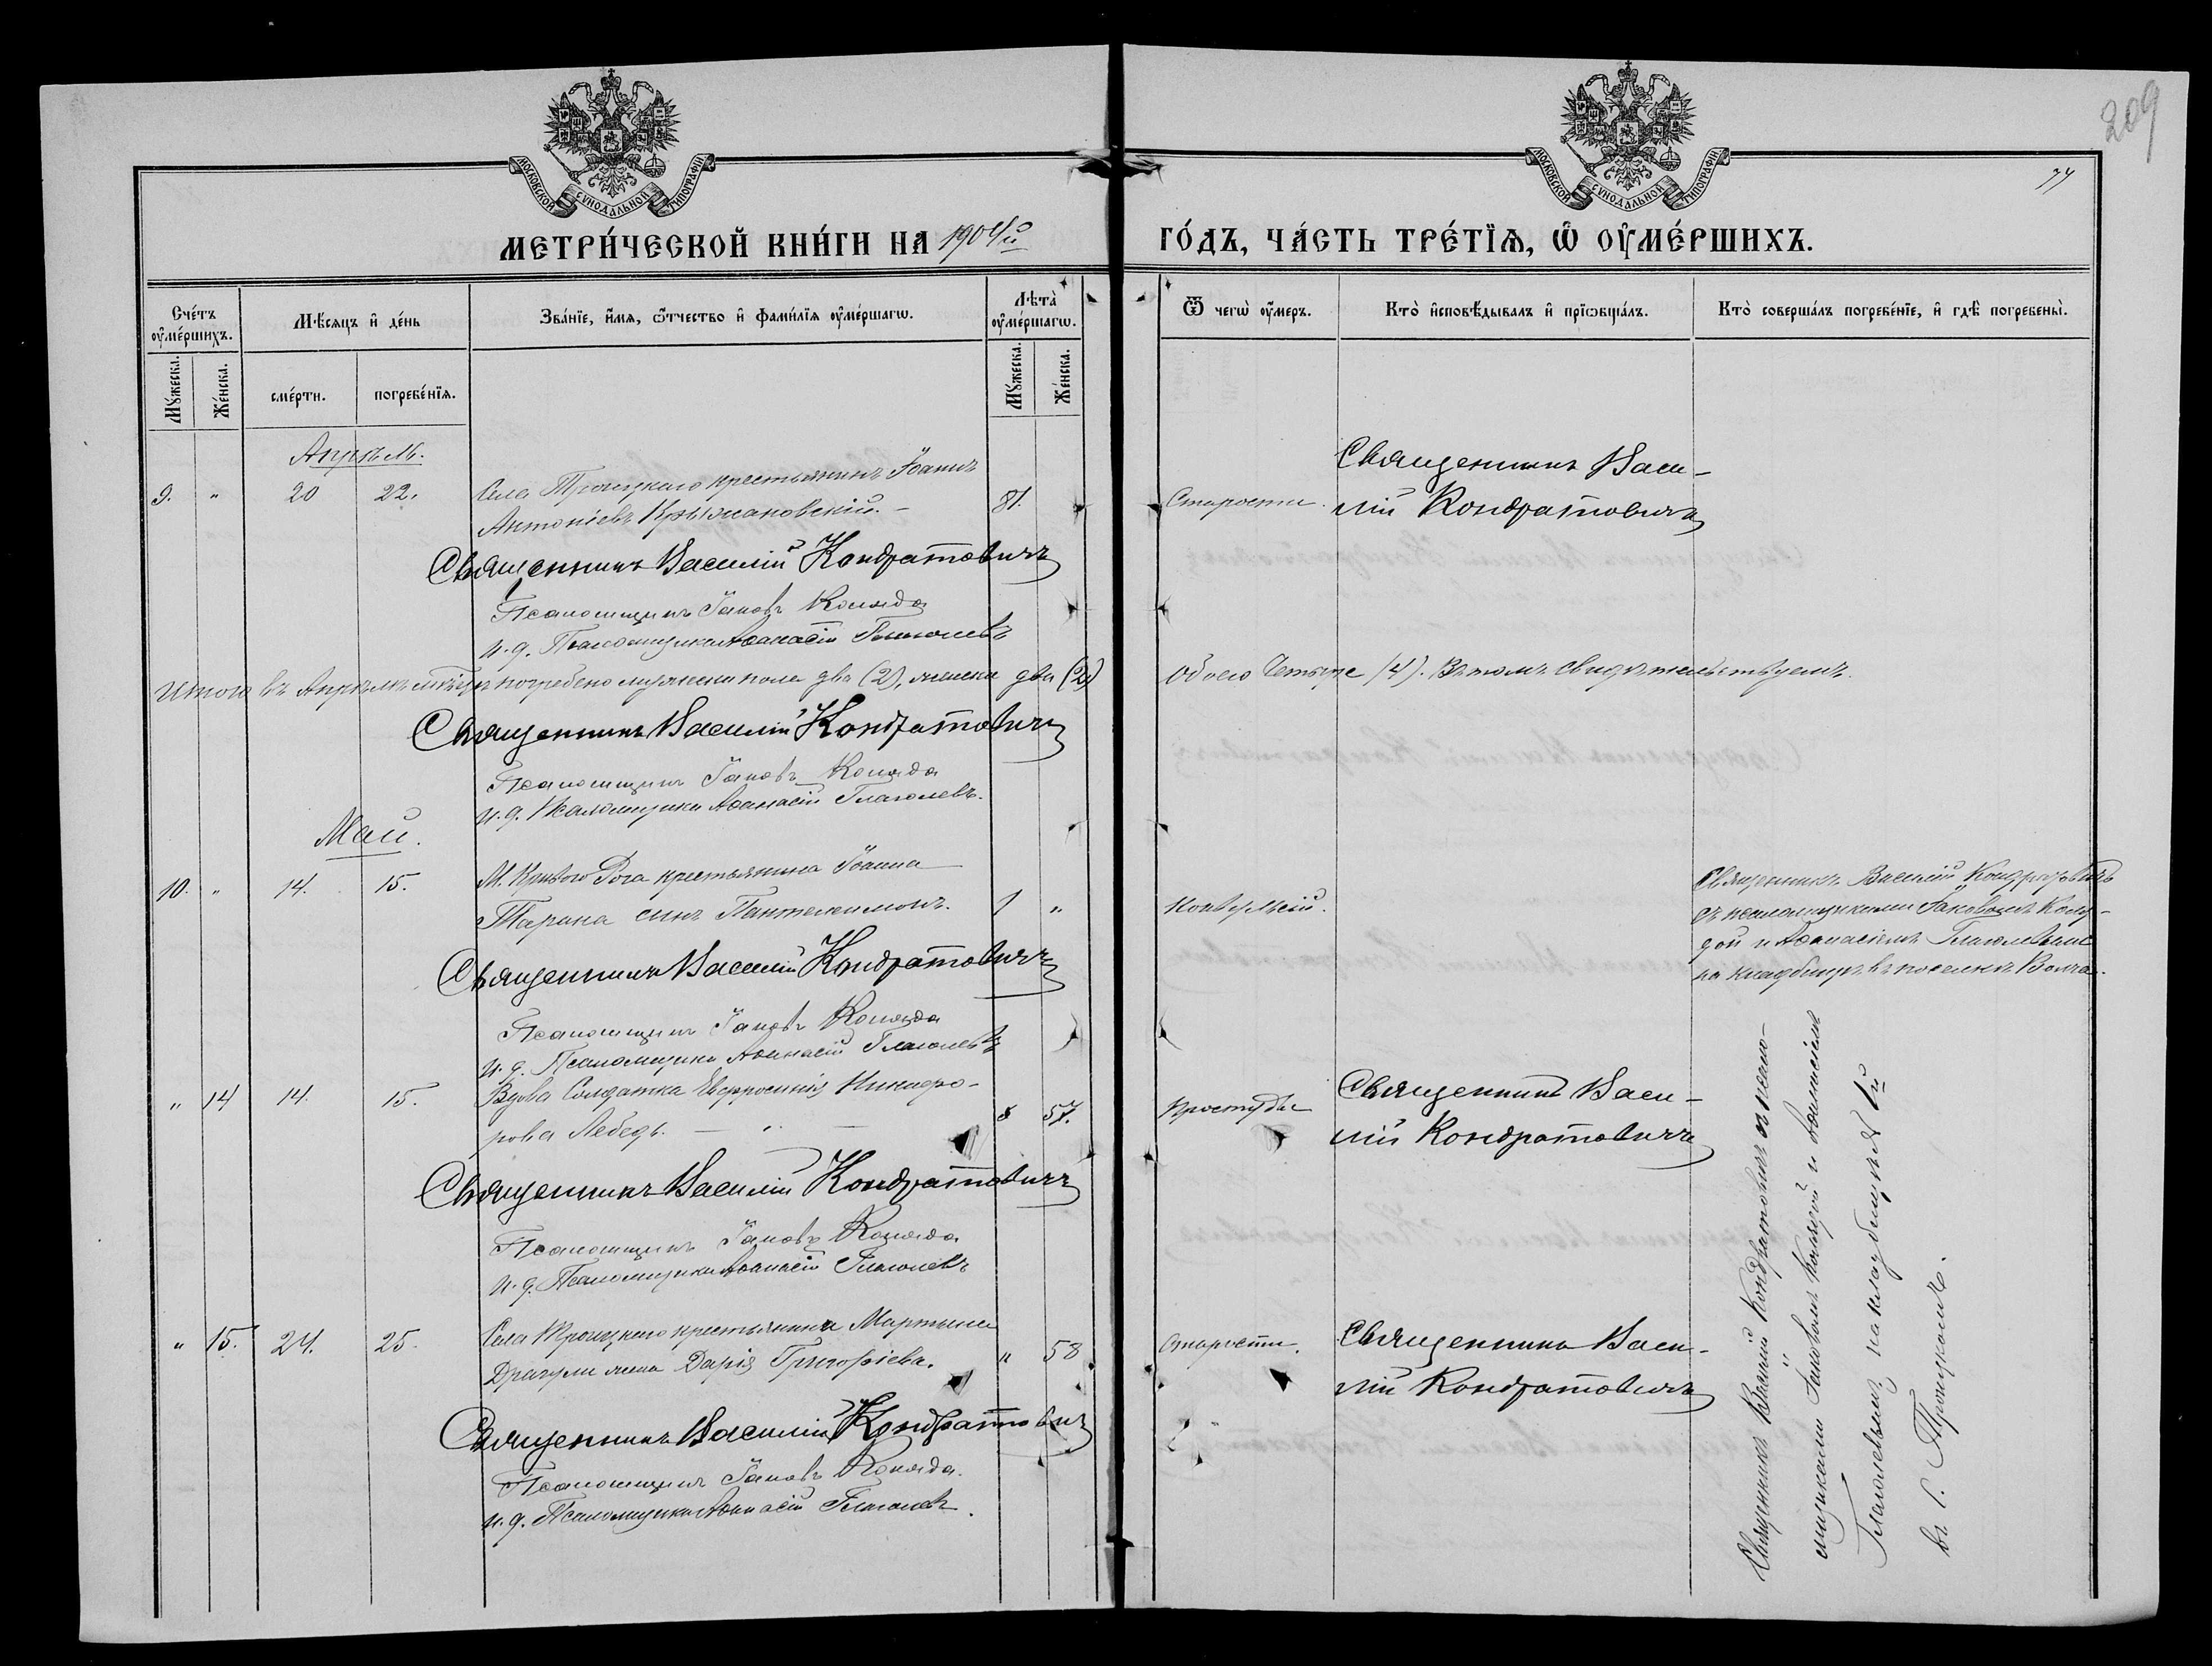 209
77
МОСКОВСКОЙ СѴНОДАЛЬНОЙ ТИПОГРАФІИ
МОСКОВСКОЙ СѴНОДАЛЬНОЙ ТИПОГРАФІИ
МЕТРИ́ЧЕСКОЙ КНИ́ГИ НА 1904й
ГО́ДЪ, ЧА́СТЬ ТРЕ́ТІѦ, Ѡ ОУ҆МЕ́РШИХЪ.
Сче́тъ оу҆ме́ршихъ.
Мѣ́сяцъ и҆ де́нь
Зва́нїе, и҆́мя, ѻ҆́тчество и҆ фами́лїя оу҆ме́ршагѡ.
Лѣта̀ оу҆ме́ршагѡ.
Ѿ чегѡ̀ оу҆́меръ.
Кто̀ и҆сповѣ́дывалъ и҆ прїѡбща́лъ.
Кто̀ соверша́лъ погребе́нїе, и҆ гдѣ̀ погребены̀.
Мꙋ́жеска.
Же́нска.
сме́рти.
погребе́нїя.
Мꙋ́жеска.
Же́нска.
Апрѣль.
9. " 20 22. Села Троицкаго крестьянинъ Іоаннъ
Антоніевъ Крыжановскій. - 81. Старости. Священникъ Васи-
лій Кондратовичъ
Священникъ Василій Кондратовичъ
Псаломщикъ Іаковъ Коляда
и. д. Псаломщика Аѳанасій Глаголевъ
Итого въ Апрѣлѣ мѣсяцѣ погребено мужеска пола два (2), женска два (2)
Обоего Четыре (4). Въ томъ свидѣтельствуемъ.
Священникъ Василій Кондратовичъ
Псаломщикъ Іаковъ Коляда
и. д. Псаломщика Аѳанасій Глаголевъ.
Май.
10. " 14. 15. М. Кривого Рога крестьянина Іоанна
Тарана сынъ Пантелеимонъ. 1 "
Священникъ Василій Кондратовичъ
съ псаломщиками Іаковомъ Коля-
дой и Аѳанасіемъ Глаголевымъ
на кладбищѣ въ поселкѣ
Священникъ Василій Кондратовичъ
Псаломщикъ Іаковъ Коляда
и. д. Псаломщика Аѳанасій Глаголевъ
" 14 14. 15. Вдова Солдатка Евфросинія Никифо-
рова Лебедь. 57. Простуды Священникъ Васи-
лій Кондратовичъ
Священникъ Василій Кондратовичъ
Псаломщикъ Іаковъ Коляда
и. д. Псаломщика Аѳанасій Глаголевъ
" 15. 24. 25. Села Троицкаго крестьянина Мартына
жена Дарія Григоріева. " 58. Старости. Священникъ Васи-
лій Кондратовичъ
Священникъ Василій Кондратовичъ
Псаломщикъ Іаковъ Коляда.
и. д. Псаломщика Аѳанасій Глаголевъ.
Священникъ Василій Кондратовичъ съ псало-
мщиками Іаковомъ Колядой и Аѳанасіемъ
Глаголевымъ на кладбищѣ
въ с. Троицкомъ.